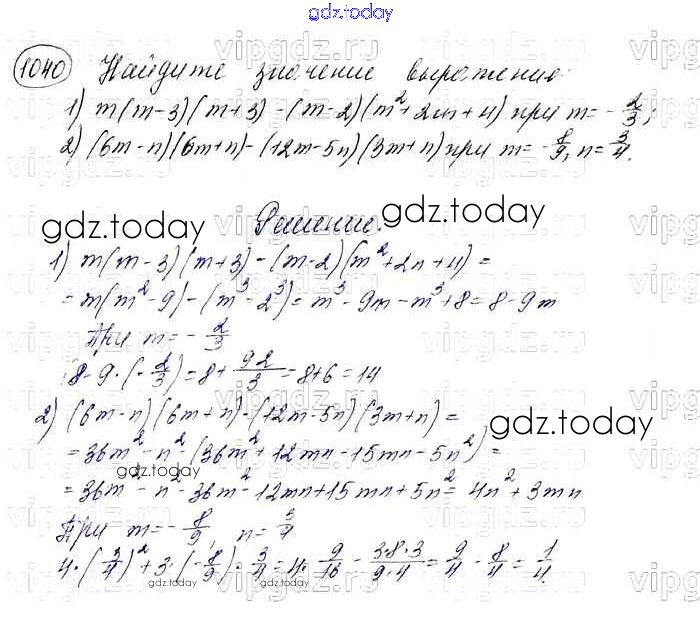 gdz.today
1040 Найдите значение выражения:
1) m(m-3)(m+3)-(m-2)(m²+2m+4) при m=-2/3;
2) (6m-n)(6m+n)-(12m-5n)(3m+n) при m=-8/9, n=3/4.
gdz.today Решение. gdz.today
1) m(m-3)(m+3)-(m-2)(m²+2m+4)=
=m(m²-9)-(m³-2³)=m³-9m-m³+8=8-9m
При m=-2/3
8-9·(-2/3)=8+9·2/3=8+6=14
2) (6m-n)(6m+n)-(12m-5n)(3m+n)=
gdz.today
=36m²-n²-(36m²+12mn-15mn-5n²)=
gdz.today
=36m²-n²-36m²-12mn+15mn+5n²=4n²+3mn
При m=-8/9, n=3/4
4·(3/4)²+3·(-8/9)·3/4=4·9/16-3·8·3/9·4=9/4-8/4=1/4.
gdz.today gdz.today
vipgdz.ru